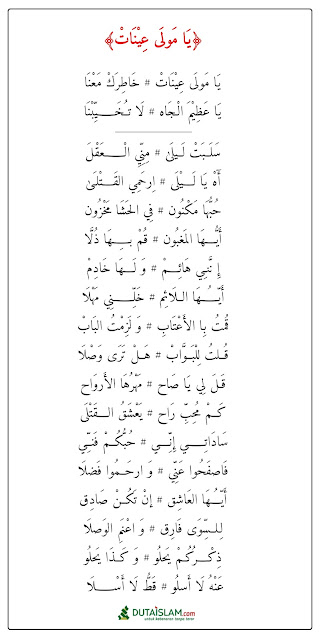 ﴿يَا مَولَى عِيْنَاتْ﴾
يَا مَولَى عِيْنَاتْ # خَاطِرَكْ مَعْنَا
يَا عَظِيْمَ الْجَاه # لَا تُخَيِّبْنَا
سَلَبَتْ لَيلَى # مِنِّي الْعَقْلَ
أَهْ يَا لَيْلَى # اِرحَمِي القَتْلَى
حُبُّهَا مَكْنُون # فِي الحَشَا مَخْزُون
أَيُّهَا المَغبُون # قُمْ بِهَا ذُلَّا
إِنَّنِي هَائِمْ # وَ لَهَا خَادِمْ
أَيُّهَا اللائِم # خَلِّنِي مَهْلَا
قُمتُ بِا الأَعْتَابِ # وَ لَزِمْتُ البَابْ
قُلتُ لِلْبَوَّابْ # هَلْ تَرَى وَصْلَا
قَلَ لِي يَا صَاح # مَهْرُهَا الأَروَاح
كَمْ مُحِبٍّ رَاح # يَعْشَقُ القَتْلَى
سَادَاتِي إِنِّي # حُبُّكُمْ فَنِّي
فَاصفَحُوا عَنِّي # وَ ارحَمُوا فَضلَا
أَيُّهَا العاشق # إِنْ تَكُنْ صَادِق
لِلسِّوَى فَارِق # وَ اغْنَمِ الوَصلَا
ذِكْرُكُمْ يَحلُو # وَ كَذَا يَحلُو
عَنْهُ لَا أَسلُو # قَطُّ لَا أَسْلَا
DUTAISLAM.com
untuk kebenaran tanpa teror